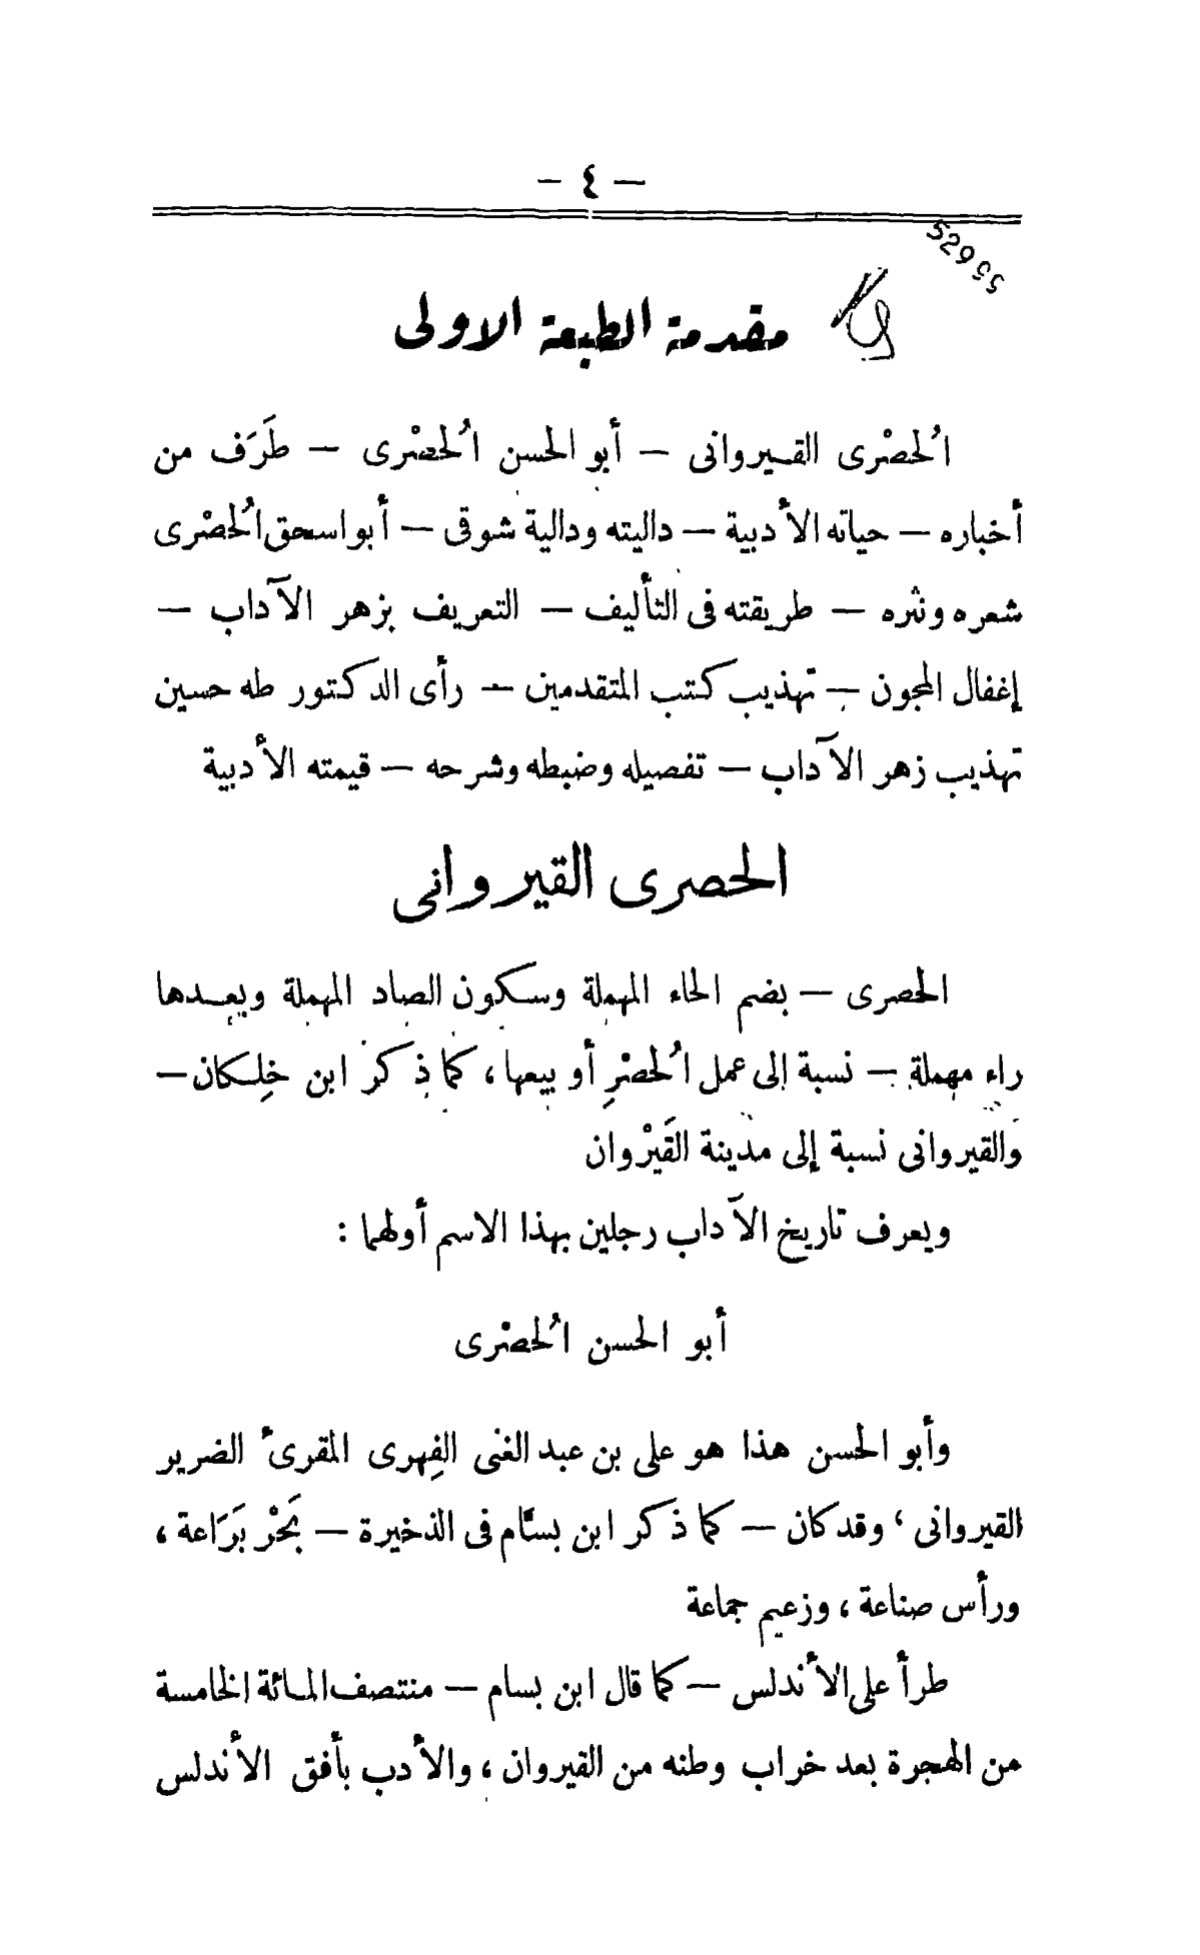 — ٤ —
52955
مقدمة الطبعة الاولى
الحُصْرى القيروانى — أبو الحسن الحُصْرى — طَرَف من
أخباره — حياته الأدبية — داليته ودالية شوقى — أبو اسحق الحُصْرى
شعره ونثره — طريقته فى التأليف — التعريف بزهر الآداب —
إغفال المجون — تهذيب كتب المتقدمين — رأى الدكتور طه حسين
تهذيب زهر الآداب — تفصيله وضبطه وشرحه — قيمته الأدبية
الحصرى القيروانى
الحصرى — بضم الحاء المهملة وسكون الصاد المهملة وبعدها
راء مهملة — نسبة إلى عمل الحُصْرِ أو بيعها، كما ذكر ابن خِلكان —
والقيروانى نسبة إلى مدينة القَيْروان
ويعرف تاريخ الآداب رجلين بهذا الاسم أولهما :
أبو الحسن الحُصْرى
وأبو الحسن هذا هو على بن عبد الغنى الفِهرى المقرئ الضرير
القيروانى ، وقد كان — كما ذكر ابن بسَّام فى الذخيرة — بَحْرْ بَرَاعة ،
ورأس صناعة ، وزعيم جماعة
طرأ على الأندلس — كما قال ابن بسام — منتصف المائة الخامسة
من الهجرة بعد خراب وطنه من القيروان ، والأدب بأفق الأندلس